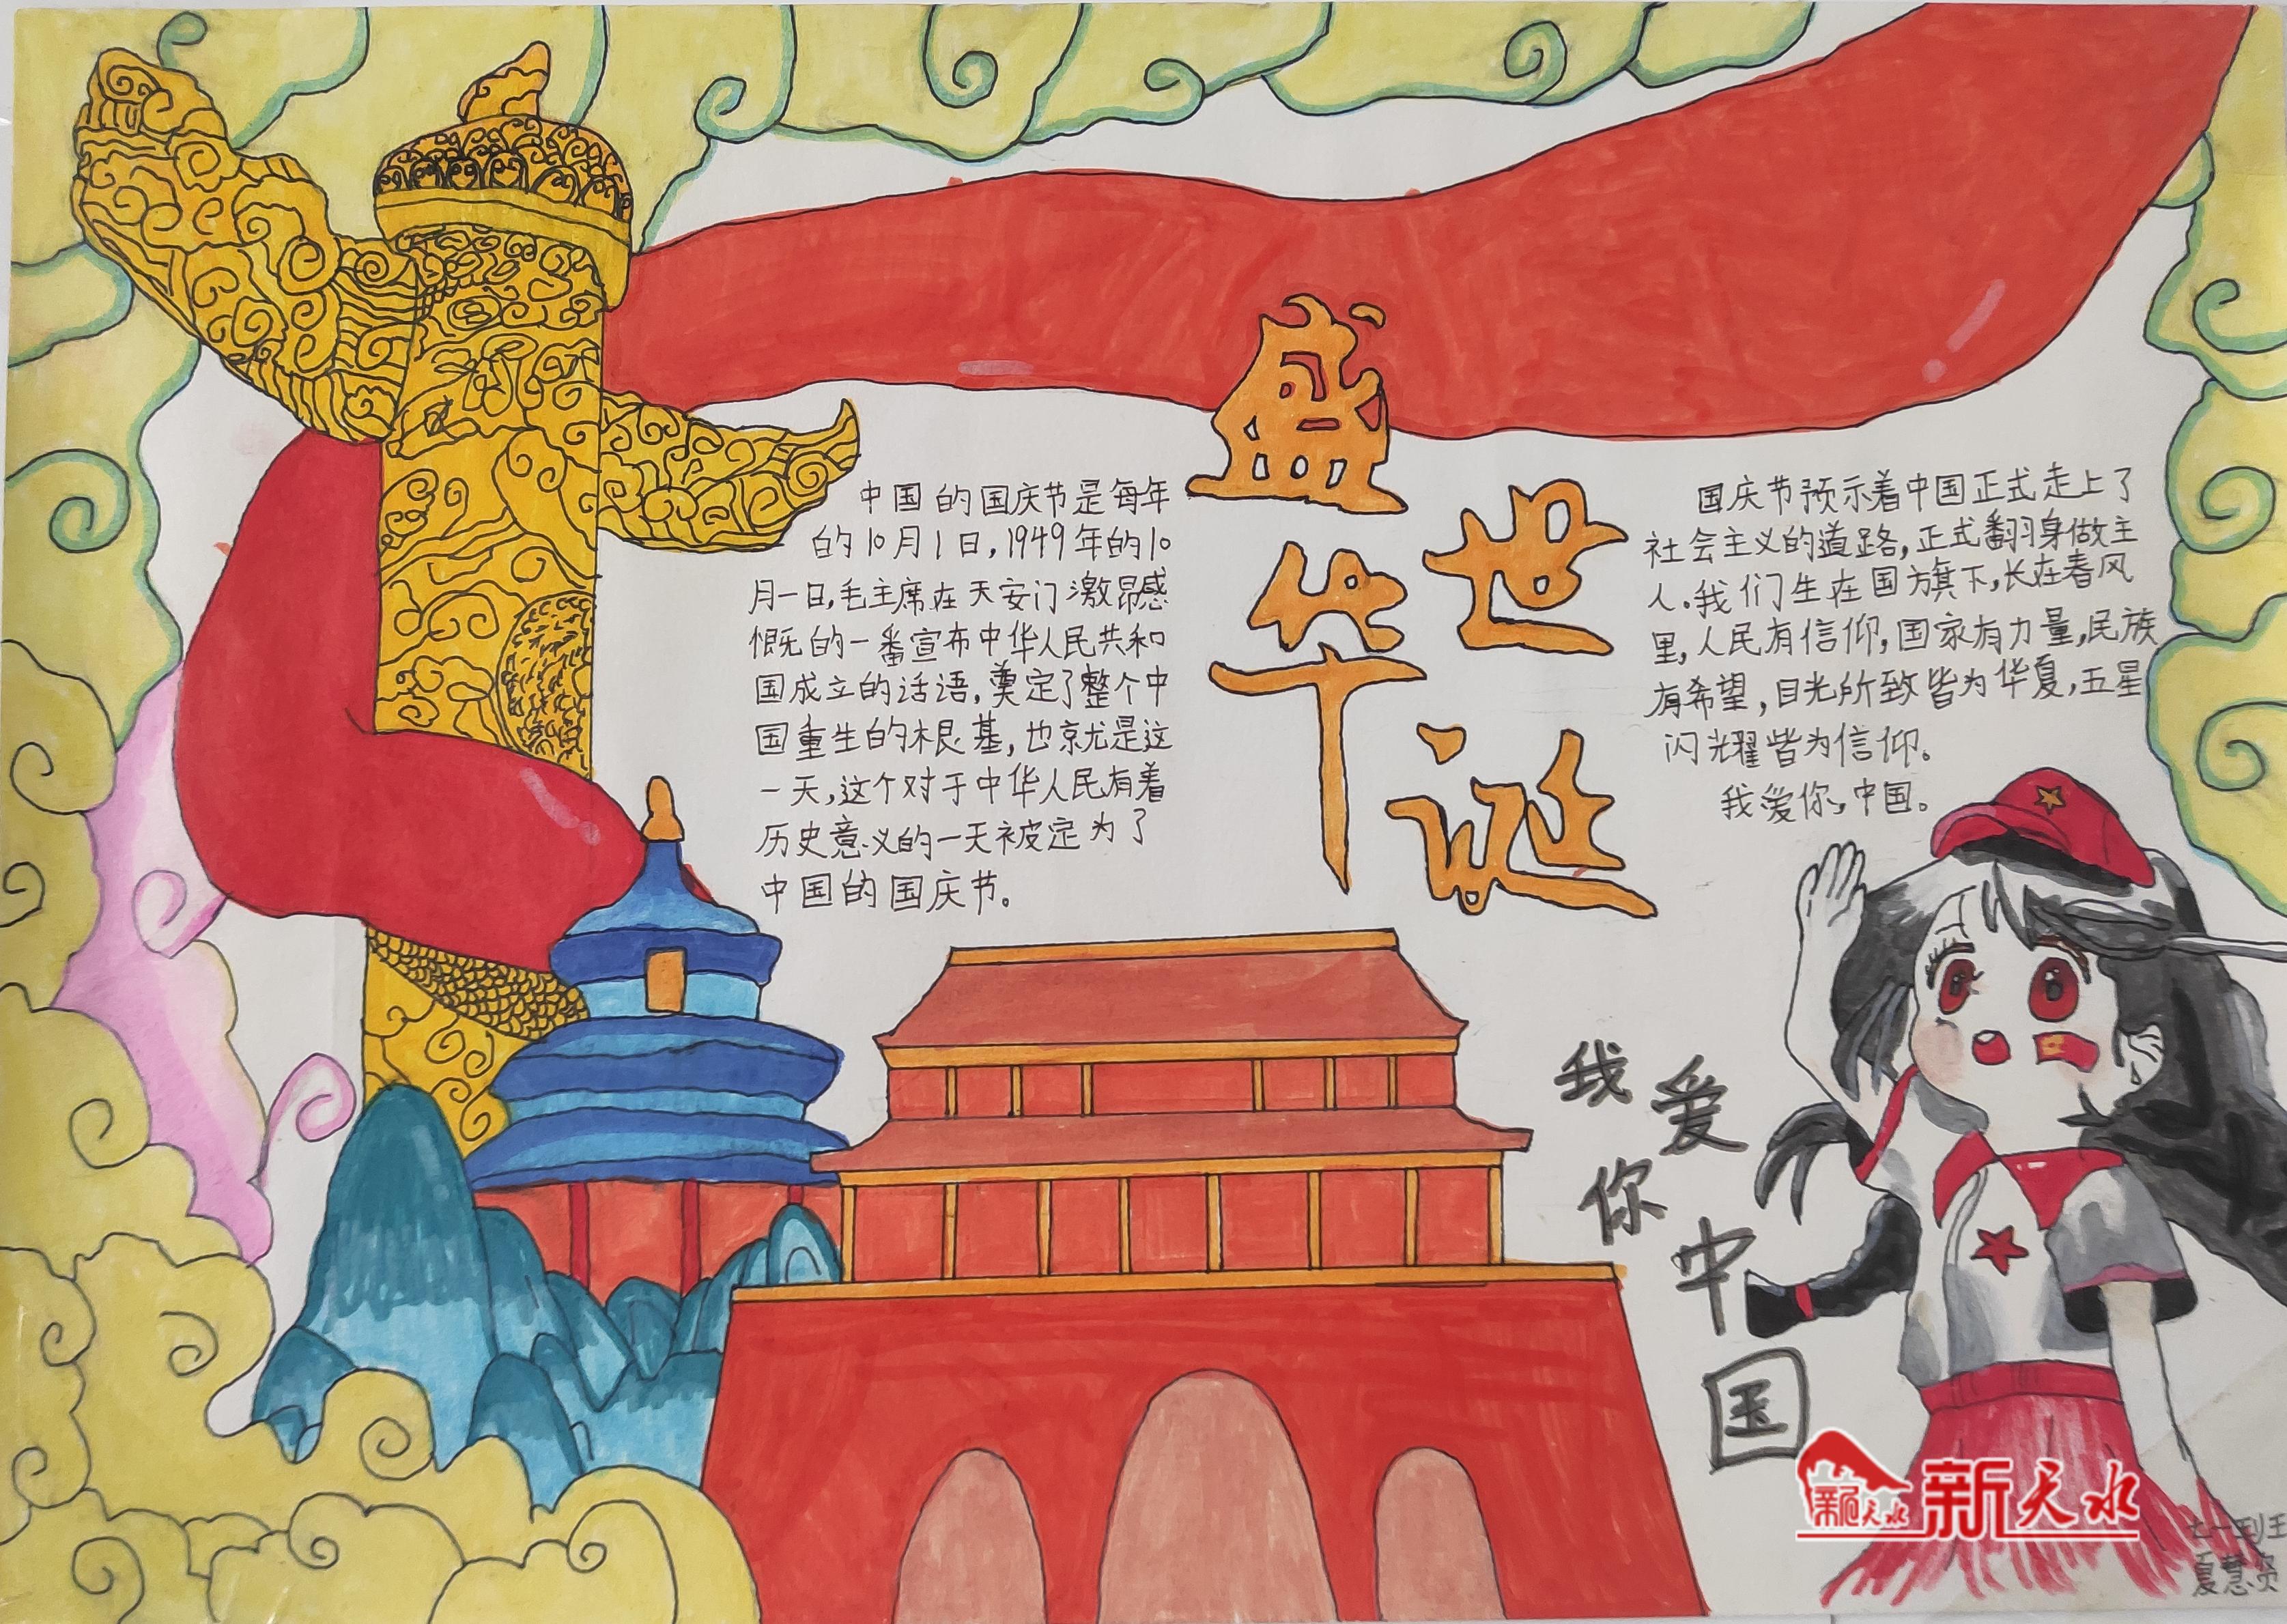 盛世华诞
中国的国庆节是每年
的10月1日,1949年的10
月一日,毛主席在天安门激昂感
慨的一番宣布中华人民共和
国成立的话语,奠定了整个中
国重生的根基,也就是这
一天,这个对于中华人民有着
历史意义的一天被定为了
中国的国庆节。
国庆节预示着中国正式走上了
社会主义的道路,正式翻身做主
人。我们生在国旗下,长在春风
里,人民有信仰,国家有力量,民族
有希望,目光所致皆为华夏,五星
闪耀皆为信仰。
我爱你,中国。
我爱你中国
新天水
新天水
夏慧